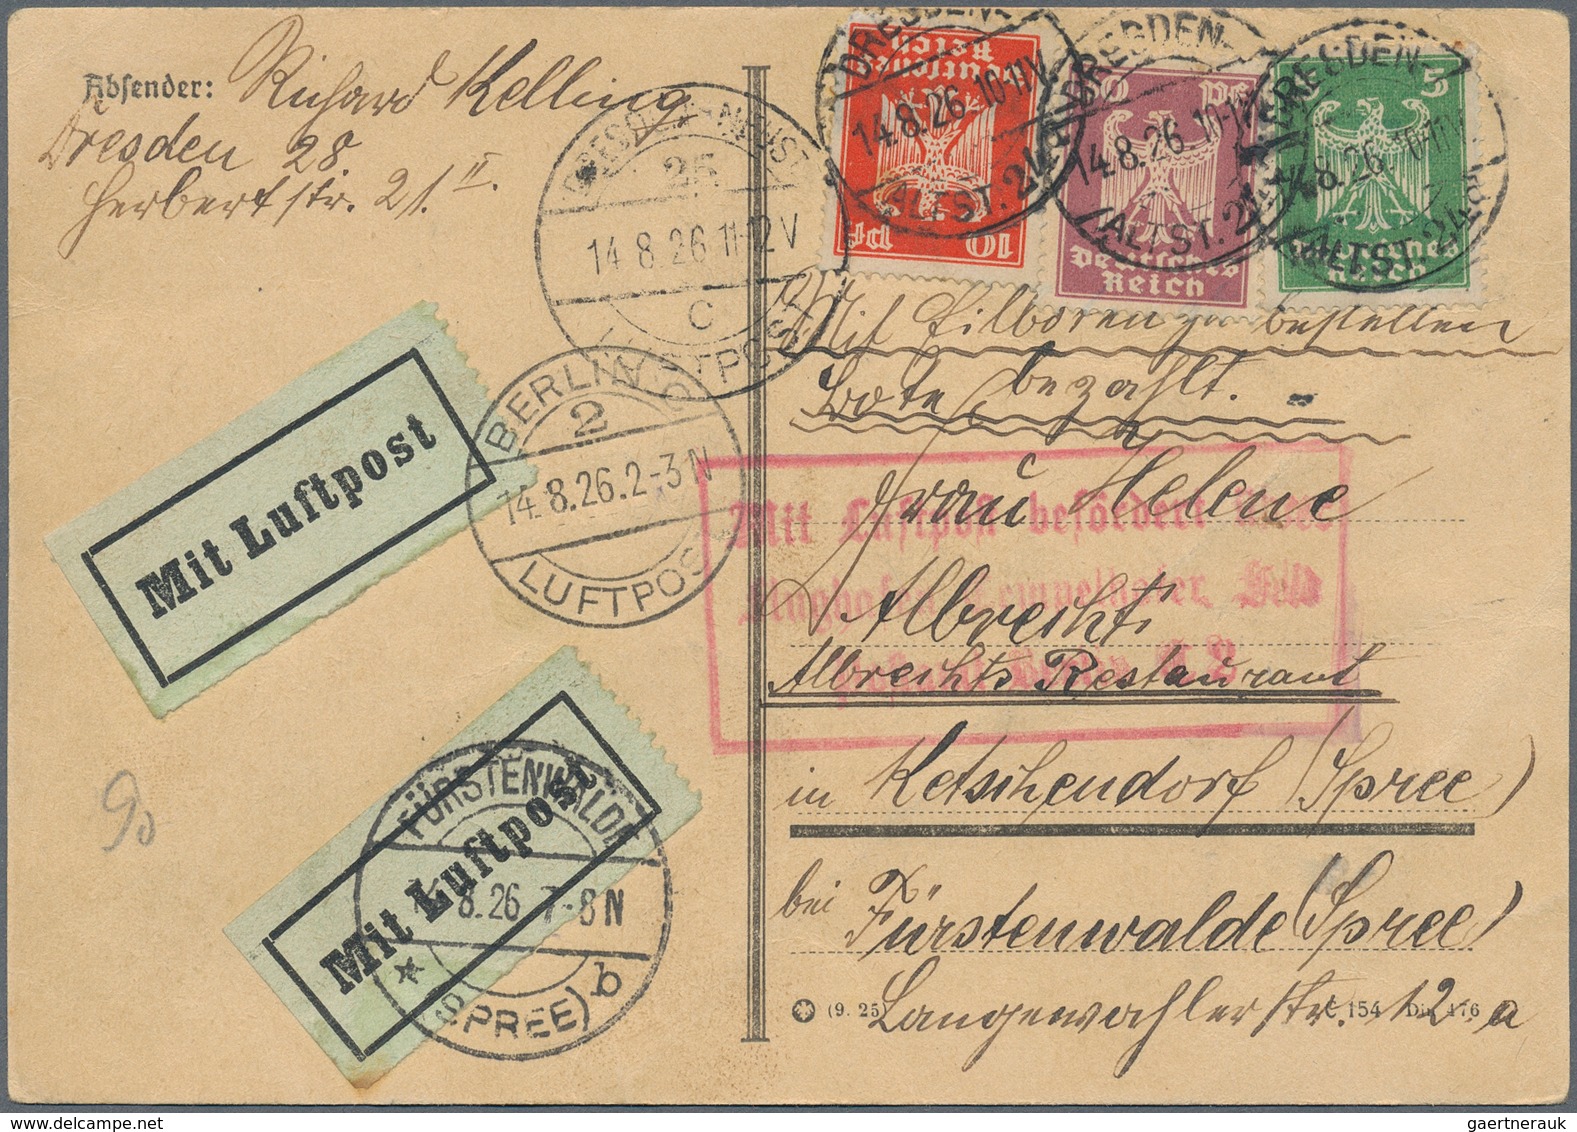 Absender: Richard Kelling
Dresden 28
Herbertstr. 21. II.
DRESDEN-NEUST.
25
14.8.26.11-12V
C
LUFTPOST
BERLIN C
2
14.8.26.2-3N
LUFTPOST
Deutsches
Reich
10 Pf
DRESDEN-
14.8.26.10-11V
ALTST. 24
50 Pf
Deutsches
Reich
DRESDEN-
14.8.26.10-11V
ALTST. 24
5
Deutsches
Reich
DRESDEN-
14.8.26 10-11V
ALTST. 24
Mit Eilboten zu bestellen
Bote bezahlt.
Mit Luftpost
Mit Luftpost befördert
Flughafen Tempelhofer Feld
Postamt Berlin
Frau Helene
Albrecht
Albrechts Restaurant
in Ketschendorf (Spree)
bei Fürstenwalde (Spree)
Langewahlerstr. 12. a
Mit Luftpost
FÜRSTENWALDE
8.26 7-8N
(SPREE) b
90
(9. 25) C 154 Din 476
gaertnerauk